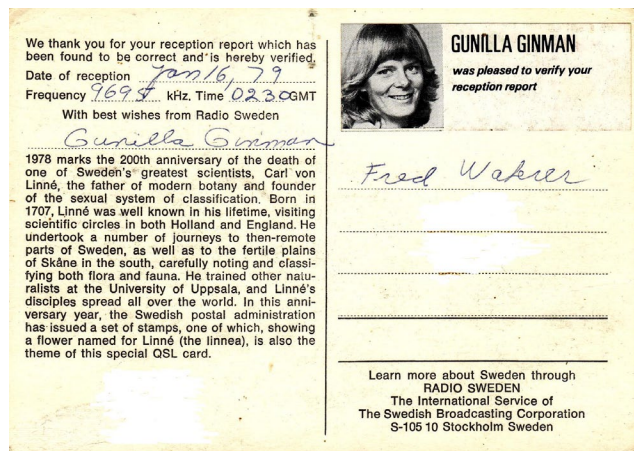 We thank you for your reception report which has
been found to be correct and is hereby verified.
Date of reception Jan 16, 79
Frequency 9695 kHz. Time 0230GMT
With best wishes from Radio Sweden
Gunilla Ginman
1978 marks the 200th anniversary of the death of
one of Sweden's greatest scientists, Carl von
Linné, the father of modern botany and founder
of the sexual system of classification. Born in
1707, Linné was well known in his lifetime, visiting
scientific circles in both Holland and England. He
undertook a number of journeys to then-remote
parts of Sweden, as well as to the fertile plains
of Skåne in the south, carefully noting and classi-
fying both flora and fauna. He trained other natu-
ralists at the University of Uppsala, and Linné's
disciples spread all over the world. In this anni-
versary year, the Swedish postal administration
has issued a set of stamps, one of which, showing
a flower named for Linné (the linnea), is also the
theme of this special QSL card.
GUNILLA GINMAN
was pleased to verify your
reception report
Fred
Learn more about Sweden through
RADIO SWEDEN
The International Service of
The Swedish Broadcasting Corporation
S-105 10 Stockholm Sweden